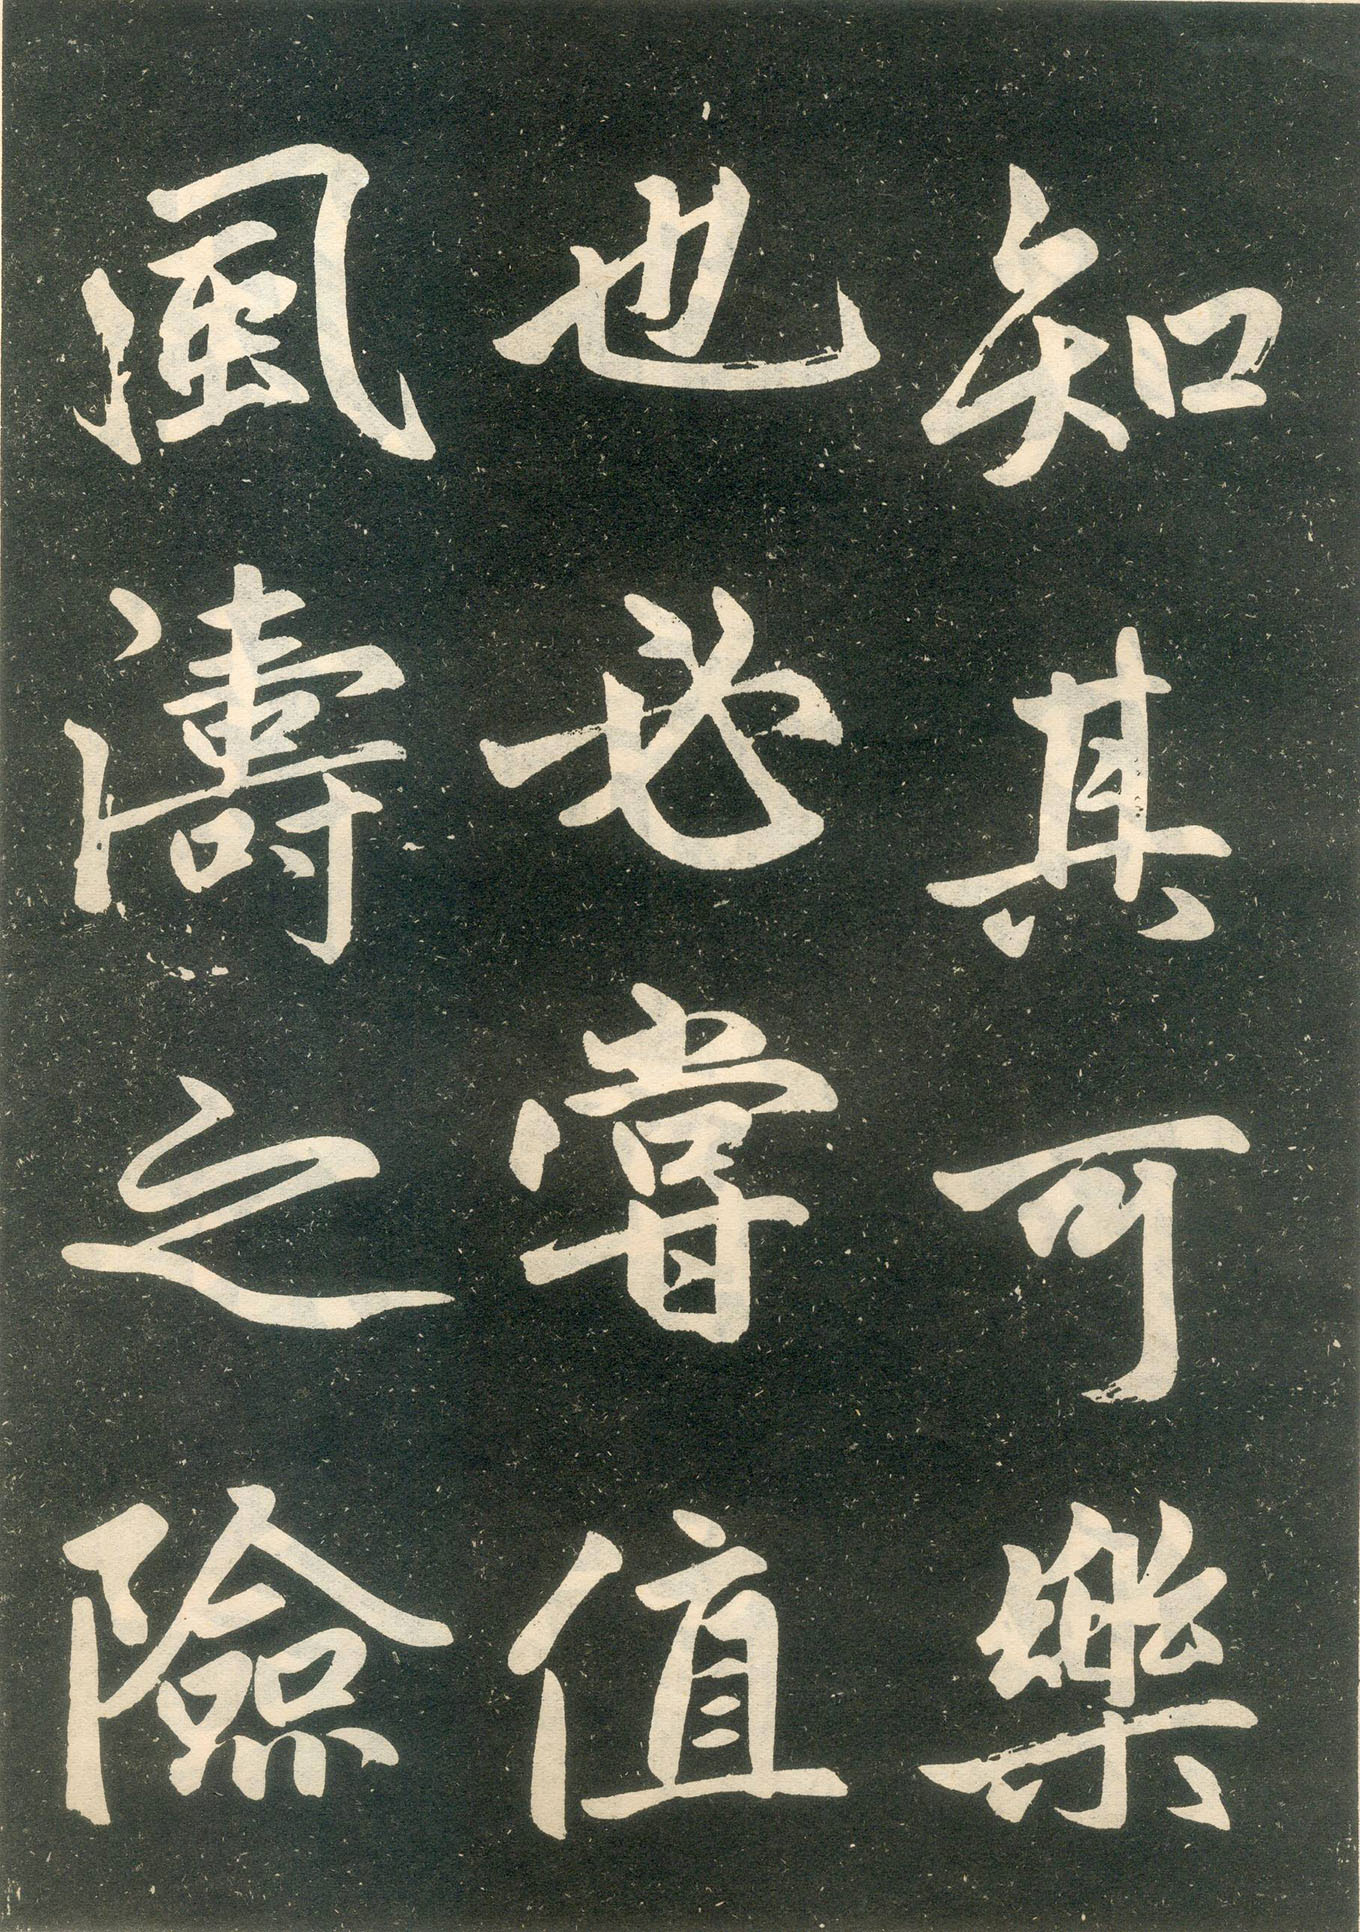 知其可樂
也必嘗值
風濤之險